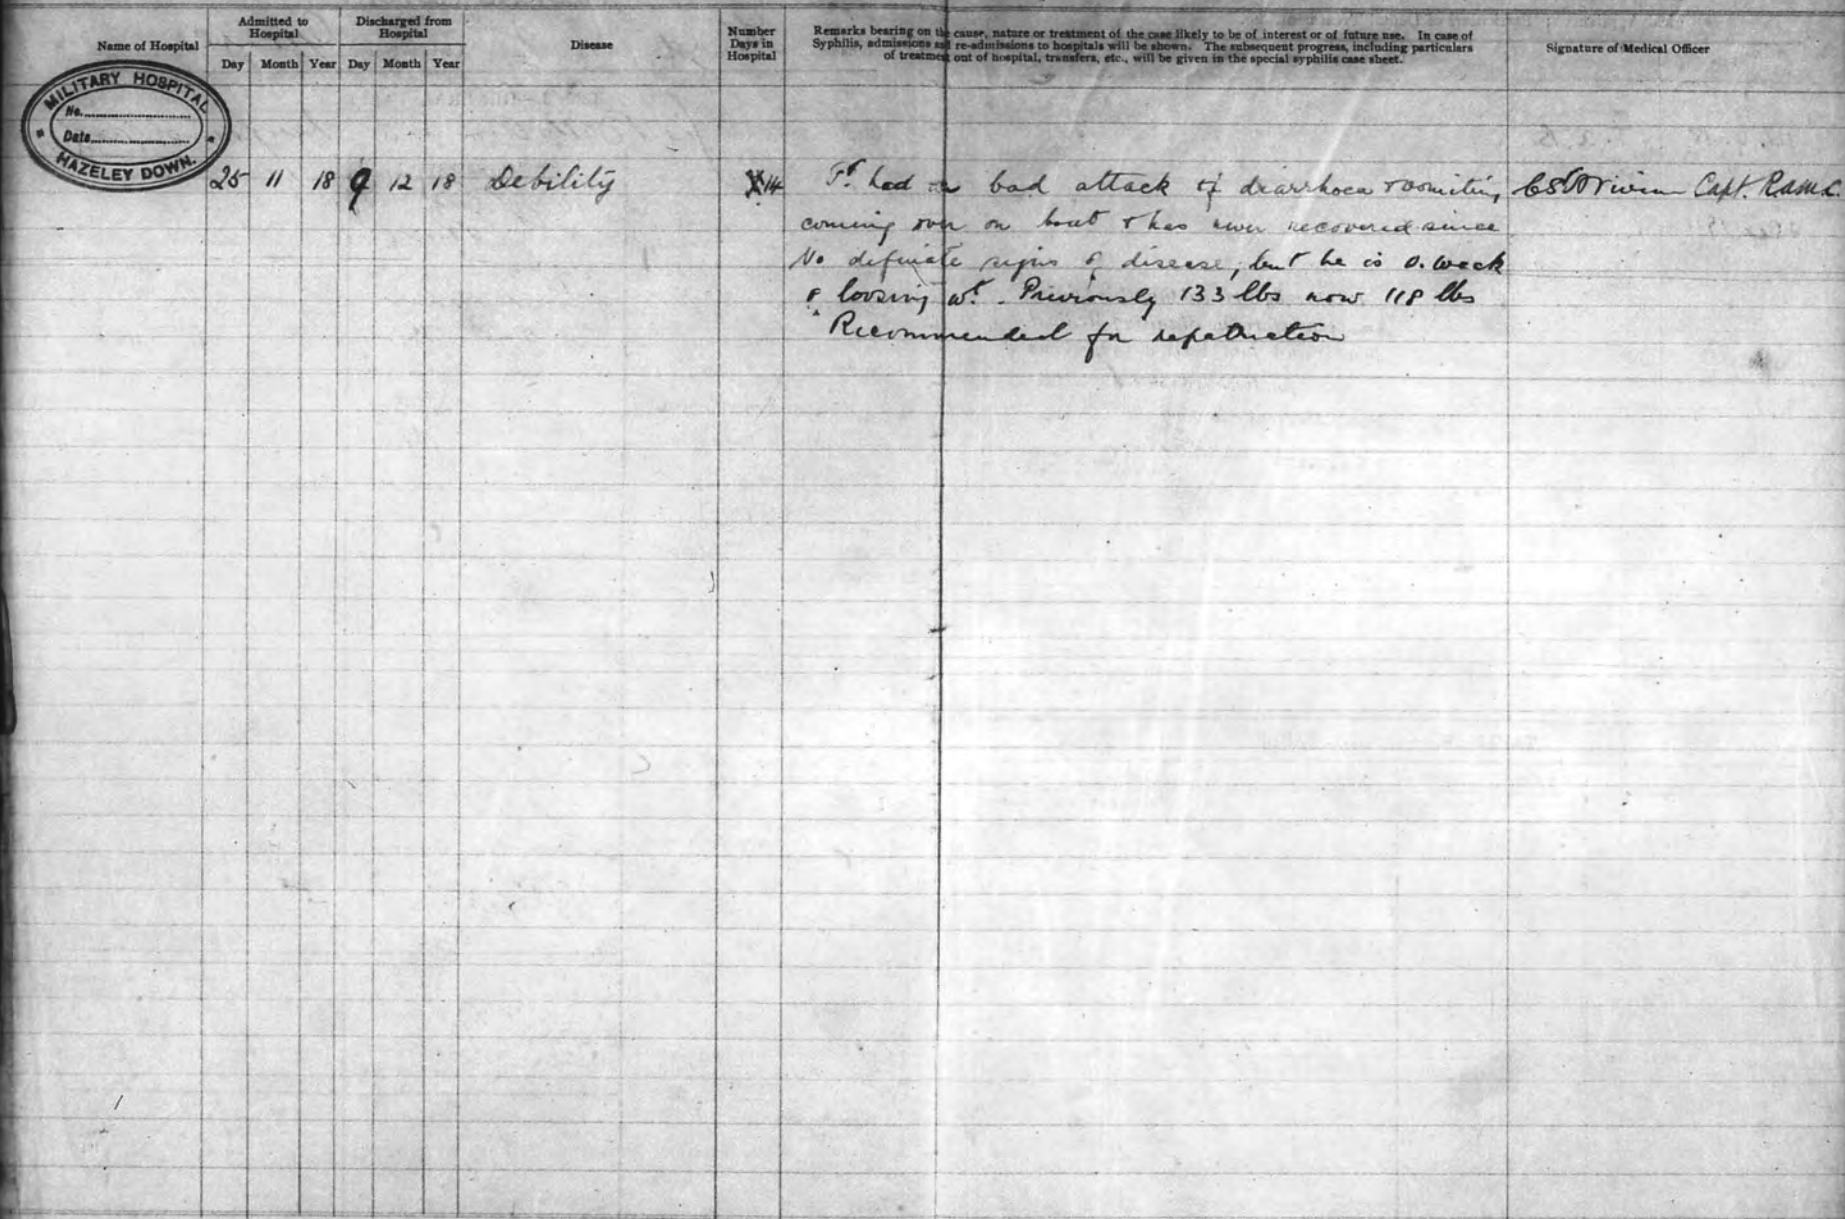 Name of Hospital
Admitted to Hospital
Discharged from Hospital
Disease
Number Days in Hospital
Remarks bearing on the cause, nature or treatment of the case likely to be of interest or of future use. In case of
Syphilis, admissions and re-admissions to hospitals will be shown. The subsequent progress, including particulars
of treatment out of hospital, transfers, etc., will be given in the special syphilis case sheet.
Signature of Medical Officer
Day Month Year Day Month Year
MILITARY HOSPITAL
No.
Date
HAZELEY DOWN.
25 11 18 9 12 18 Debility 14 Pt. had a bad attack of diarrhoea & vomiting Capt. R.A.M.C.
coming over on boat & has never recovered since
No definate signs of disease, but he is v. weak
& loosing wt. Previously 133 lbs now 118 lbs
Recommended for repatriation